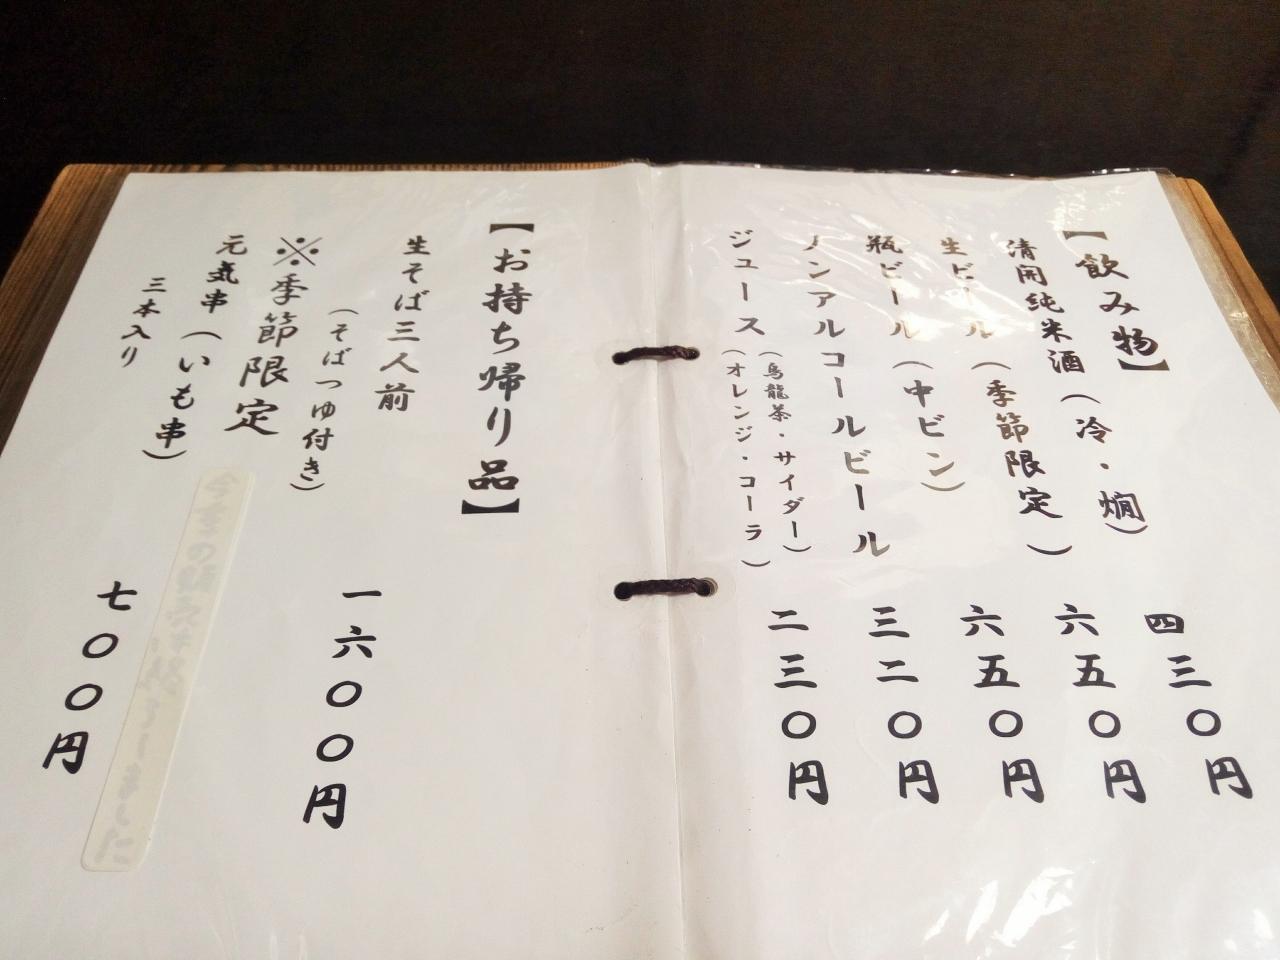 【飲み物】
清開純米酒（冷・燗）
四三〇円
生ビール（季節限定）
六五〇円
瓶ビール（中ビン）
六五〇円
ノンアルコールビール
三二〇円
ジュース（烏龍茶・サイダー）
（オレンジ・コーラ）
二三〇円
【お持ち帰り品】
生そば三人前
（そばつゆ付き）
一六〇〇円
※季節限定
元気串（いも串）
三本入り
七〇〇円